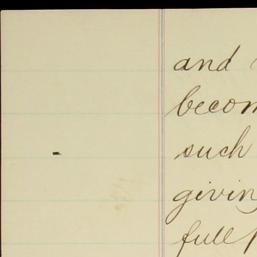 and
becom
such
givin
full